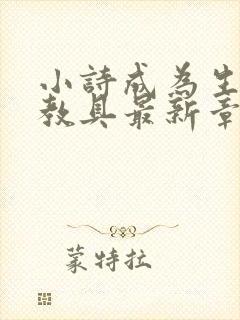 小詩成為生
教具最新章
蒙特拉